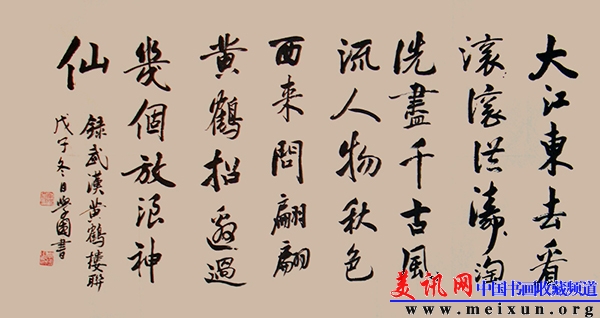 大江東去看
滚滚洪濤淘
洗盡千古風
流人物秋色
西来問翩翩
黄鶴招邀過
幾個放浪神
仙
錄武漢黄鶴樓联
戊子冬日學国書
美讯网 中国书画收藏频道
www.meixun.org